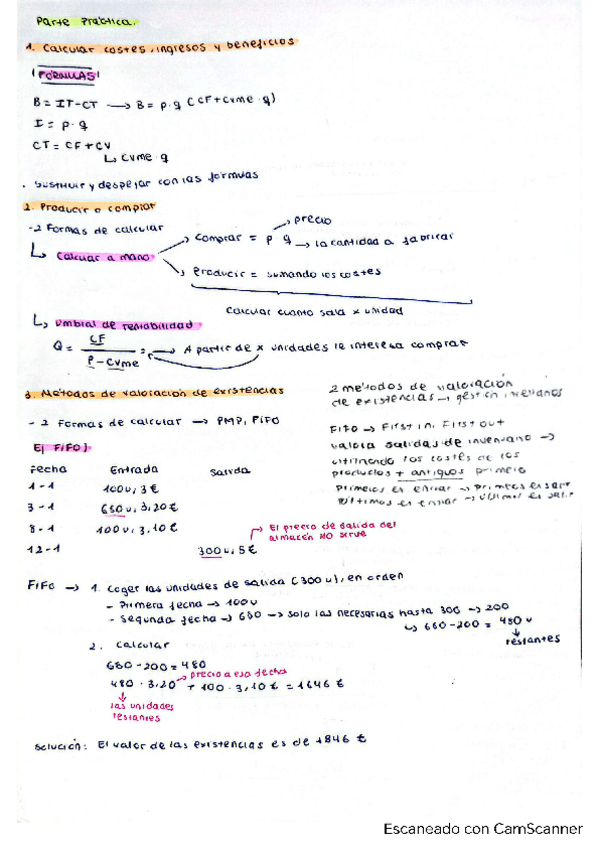 Parte Práctica.
1. Calcular costes, ingresos y beneficios
FÓRMULAS
B = IT - CT → B = p·q (CF + Cvme · q)
I = p·q
CT = CF + CV
↳ Cvme · q
. Sustituir y despejar con las fórmulas
2. Producir o comprar
- 2 Formas de calcular
↳ Calcular a mano
Comprar = p · q
→ precio
→ la cantidad a fabricar
Producir = sumando los costes
Calcular cuanto sala x unidad
↳ Umbral de rentabilidad
Q = CF / P - CVme = → A partir de x unidades le interesa comprar
3. Métodos de valoración de existencias
- 2 Formas de calcular → PMP, FIFO
2 métodos de valoración
de existencias → gestión
FIFO → First in, First out
valora salidas de inventario →
los costes de los
productos + antiguos primero
Primeros en entrar → primeros en salir
Últimos en entrar → últimos en salir
Ej FIFO]
Fecha Entrada Salida
1-1 100u, 3€
3-1 680u, 3,20€
8-1 100u, 3,10€
12-1 300u, 5€
→ El precio de salida del
almacén NO sirve
FIFO → 1. Coger las unidades de salida (300u), en orden
- Primera fecha → 100u
- Segunda fecha → 680 → solo las necesarias hasta 300 → 200
↳ 680-200 = 480u
↓
restantes
2. Calcular
680-200 = 480
480 · 3,20 + 100 · 3,10€ = 1846€
→ precio a esa fecha
↓
las unidades
restantes
Solución: El valor de las existencias es de 1846 €
Escaneado con CamScanner